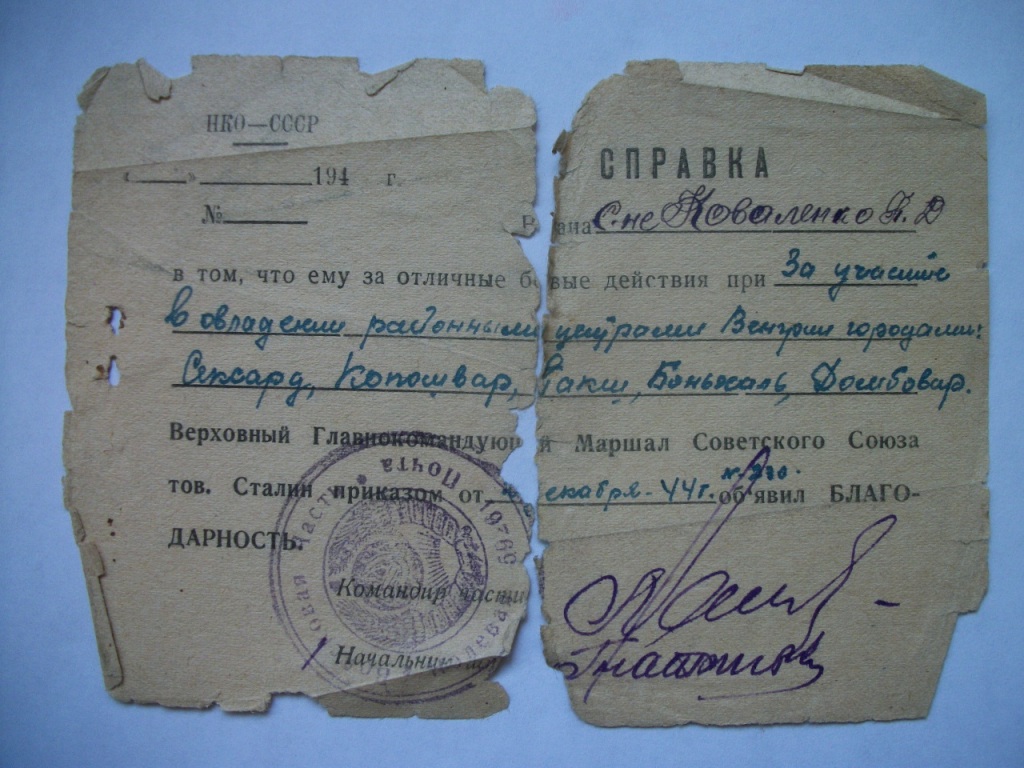 НКО—СССР
«___»________194 г.
№______
СПРАВКА
В ана С-не Коваленко Д
в том, что ему за отличные бо вые действия при За участие
в овладении районными центрами Венгрии городами:
Сексард, Копошвар, Пакш, Боньхаль, Домбовар.
Верховный Главнокомандующ й Маршал Советского Союза
тов. Сталин приказом от екабря-44г. об'явил БЛАГО-
ДАРНОСТЬ.
Командир части
Начальник
Полевая Почта 19769